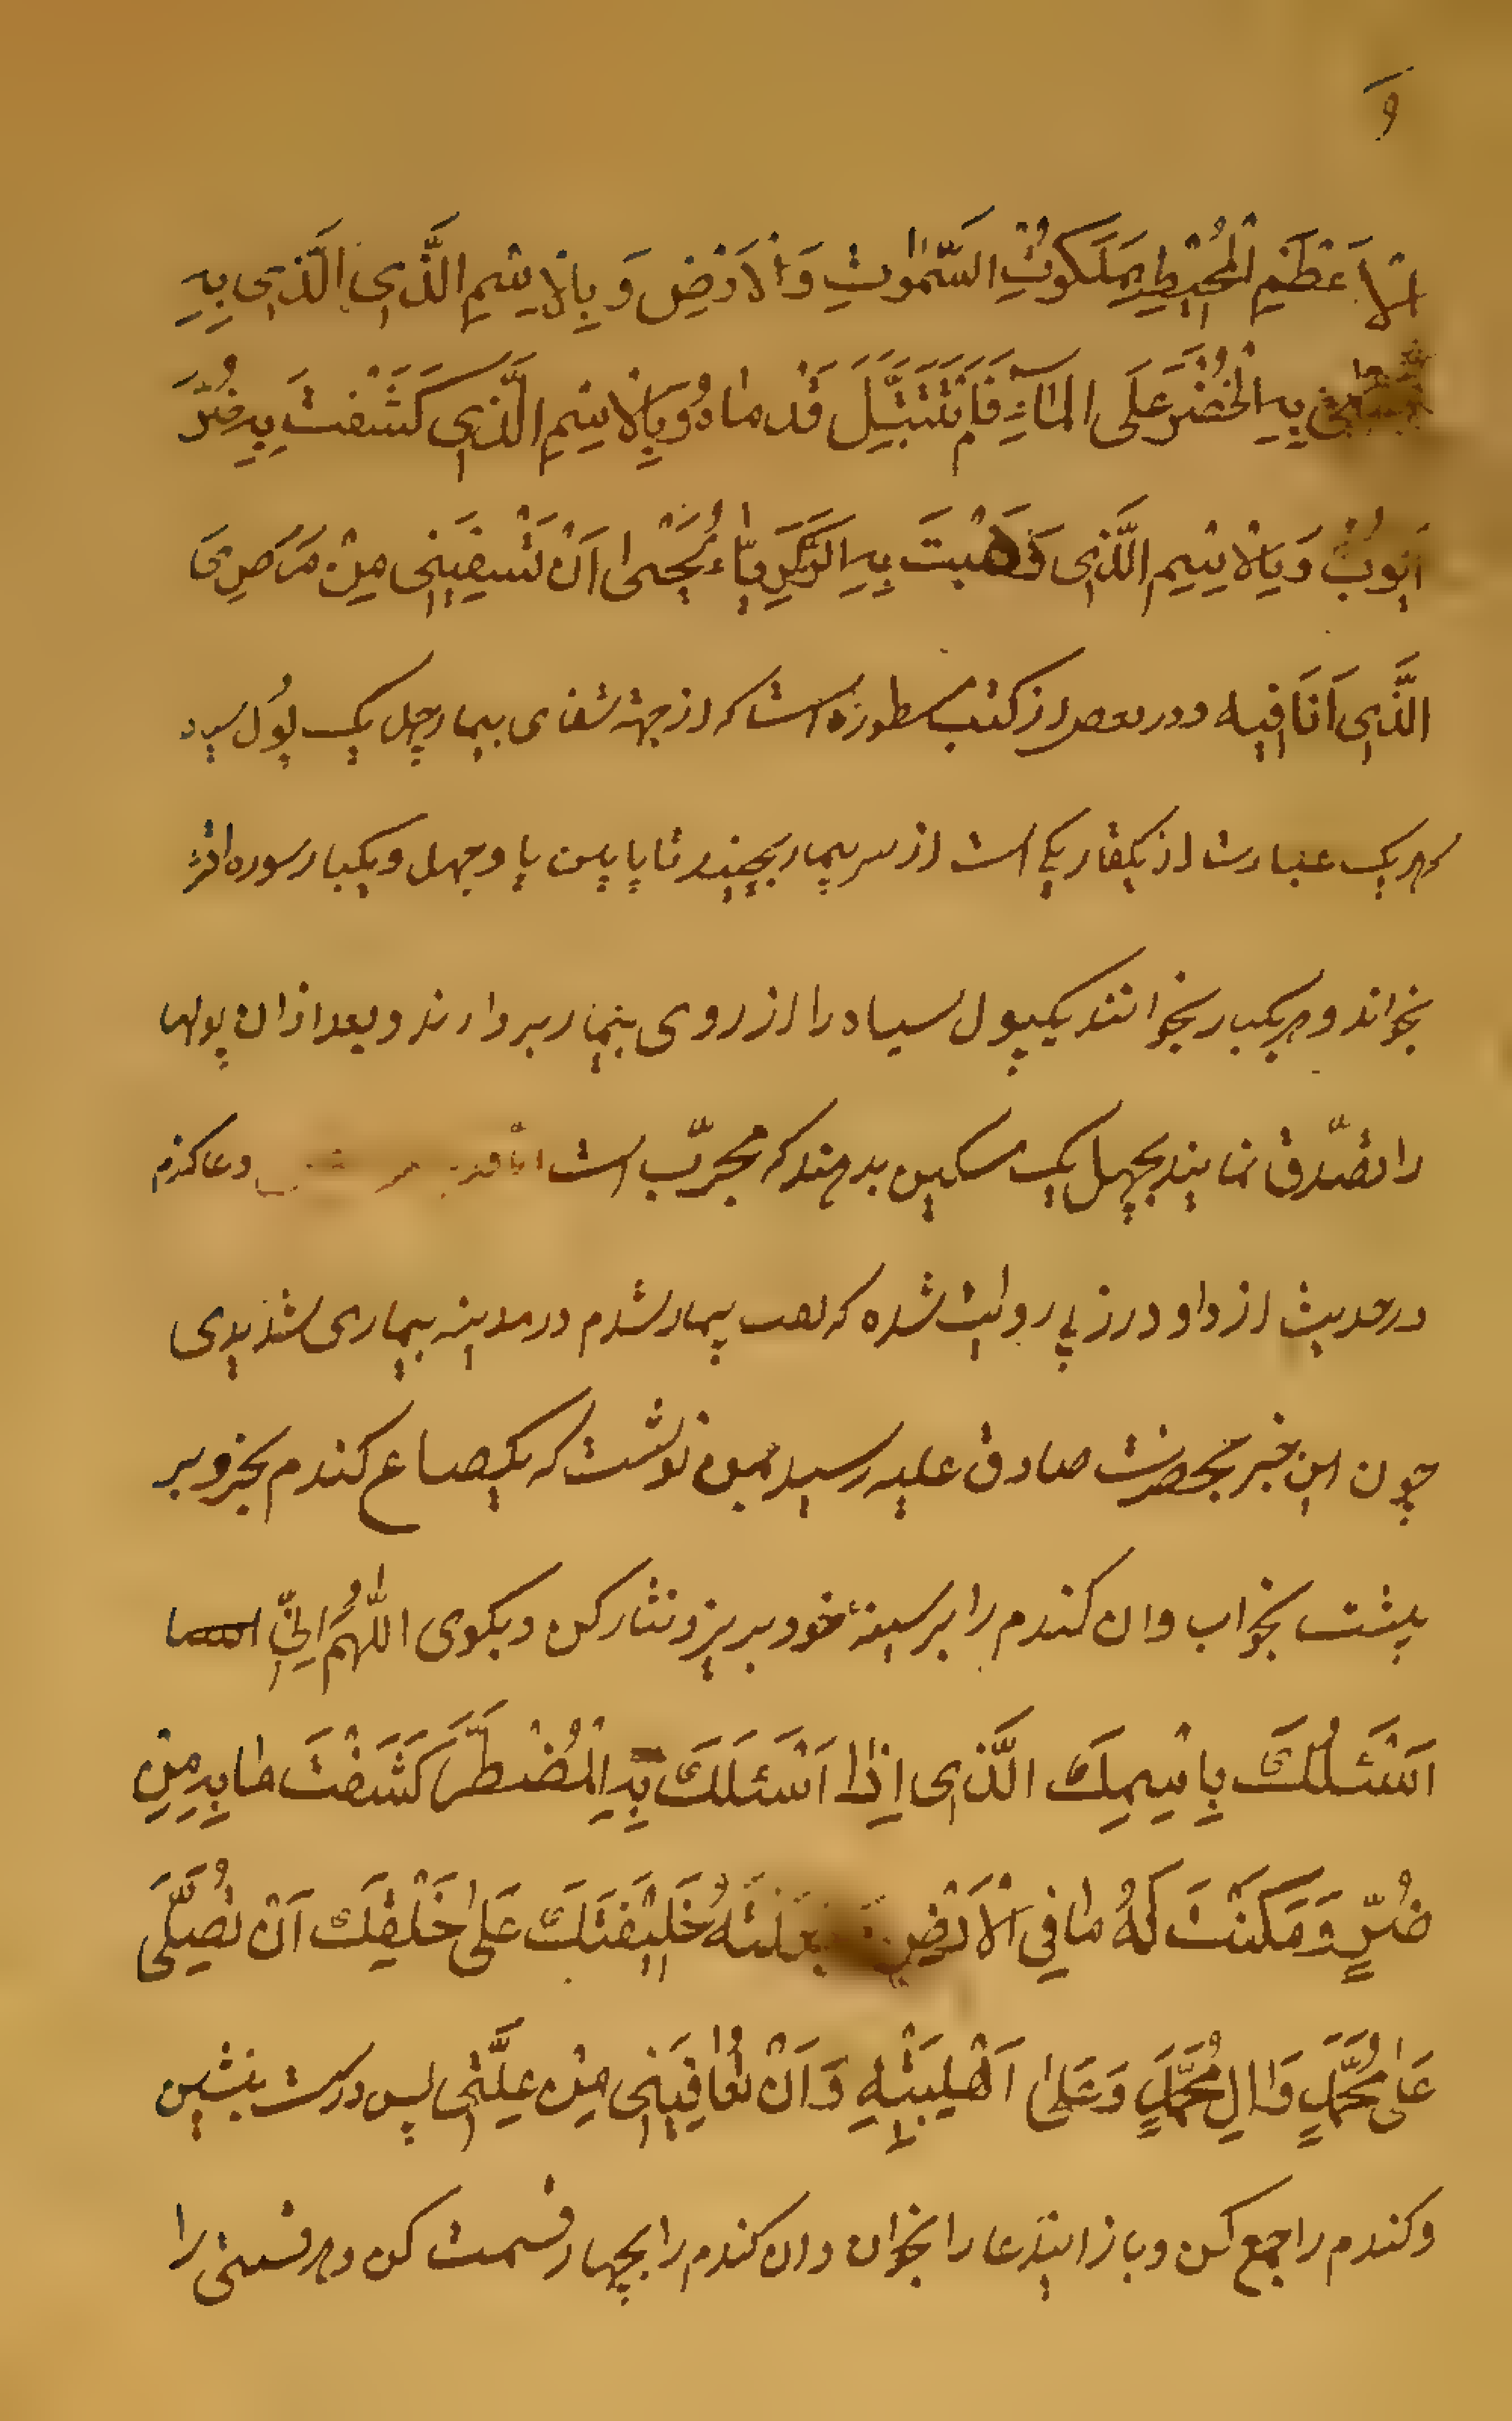 و
الاَعْظَمِ الْمُحيطِ بِمَلَكُوتِ السَّمٰوٰتِ وَالْاَرْضِ وَ بِالْاِسْمِ الَّذي الَّذي بِهِ
بِهِ الْخُضْرَ عَلَى الْمٰآءِ فَلَمْ تَبْتَلَّ قَدْمٰاهُ وَ بِالْاِسْمِ الَّذي كَشَفْتَ بِهِ ضُرَّ
اَيّوُبْ وَ بِالْاِسْمِ الَّذي وَهَبْتَ بِهِ الزَّكَرِيّٰاء يَحْيىٰ اَنْ تَشْفِيَنِي مِنْ مَرَضِيَ
الَّذي اَنَا فيه و در بعضی از کتب مسطوره است که از جهة شفای بیمار چهل یک پول سیاه
که هر یک عبارت از یکقاریکی است از سر بیمار بچینند تا پایین پا و چهل و یکبار سوره
بخواند و هر یکبار بخوانند یکپول سیاه را از روی بیمار بردارند و بعد از ان پولها
را تصّدق نمایند بچهل یک مسکین بدهند که مجرّب است دعا کندم
در حدیث از داود رزبی روایت شده که گفت بیمار شدم در مدینه بیماری شدیدی
چون این خبر بحضرت صادق علیه رسید بمن نوشت که یکصاع کندم بخر و بر
پشت بخواب و ان کندم را بر سینهٔ خود بریز و نثار کن و بکوی اللّٰهُمَ اِنّي
اَسْئَلُكَ بِاسْمِكَ الَّذي اِذٰا اَسْئَلَكَ بِهِ الْمُضْطَرَّ كَشَفْتَ مٰا بِهِ مِنْ
ضُرٍّ وَ مَكَنْتَ لَهُ مٰا فِي الْاَرْضِ وَ جَعَلْتَهُ خَليفَتَكَ عَلىٰ خَلْقِكَ اَنْ تُصَلّيَ
عَلىٰ مُحَمَّدٍ وَ الِ مُحَمَّدٍ وَ عَلىٰ اَهْلِبَيْتِهِ وَ اَنْ تُعٰافِيَنِي مِنْ عِلَّتي پس درست بنشین
و کندم را جمع کن و باز ایندعا را بخوان و ان کندم را بچهار قسمت کن و هر قسمتی را